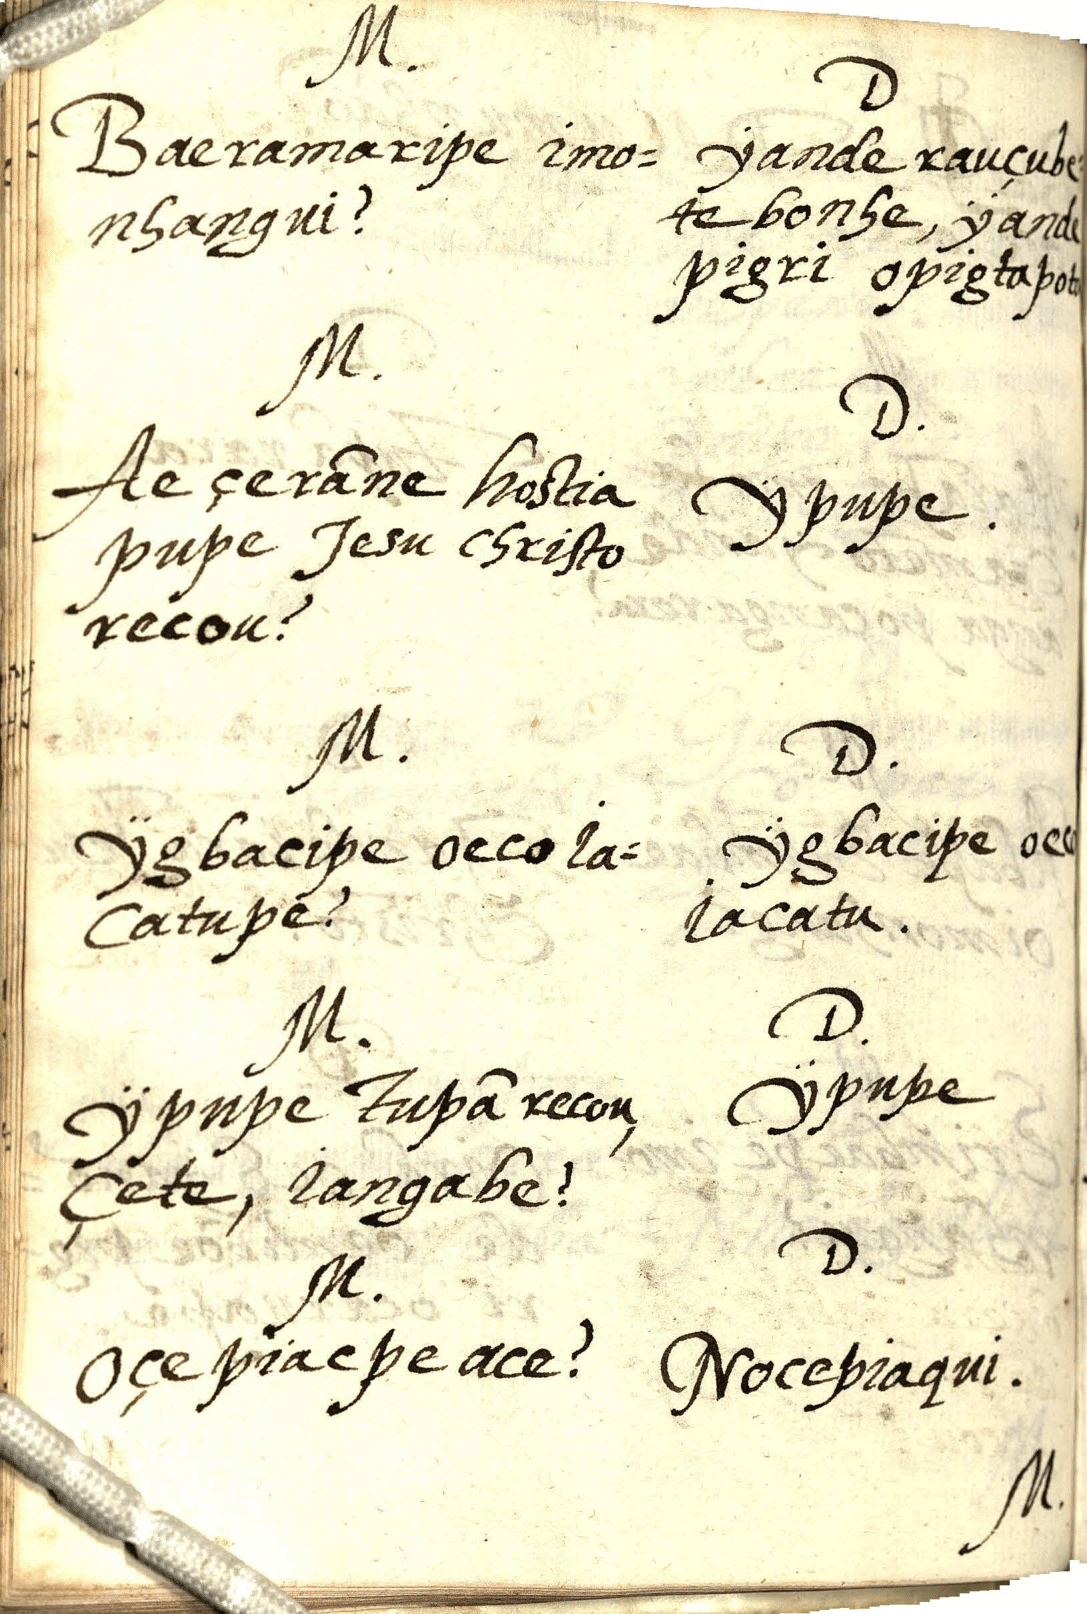 M.
Baeramaripe imo=
nhangui?
D
ÿande rauçube
te bonhe, ÿande
pigri opigtapot
M.
Ae çerãne hostia
pupe Jesu christo
recou?
D.
Ÿpupe.
M.
Ÿgbacipe oeco ia=
catupe?
D.
Ÿgbacipe oeco
iacatu.
M.
Ÿpupe tupã recou,
Çete, iangabe?
D.
Ÿpupe
M.
Oçepiacpe ace?
D.
Nocepiaqui.
M.